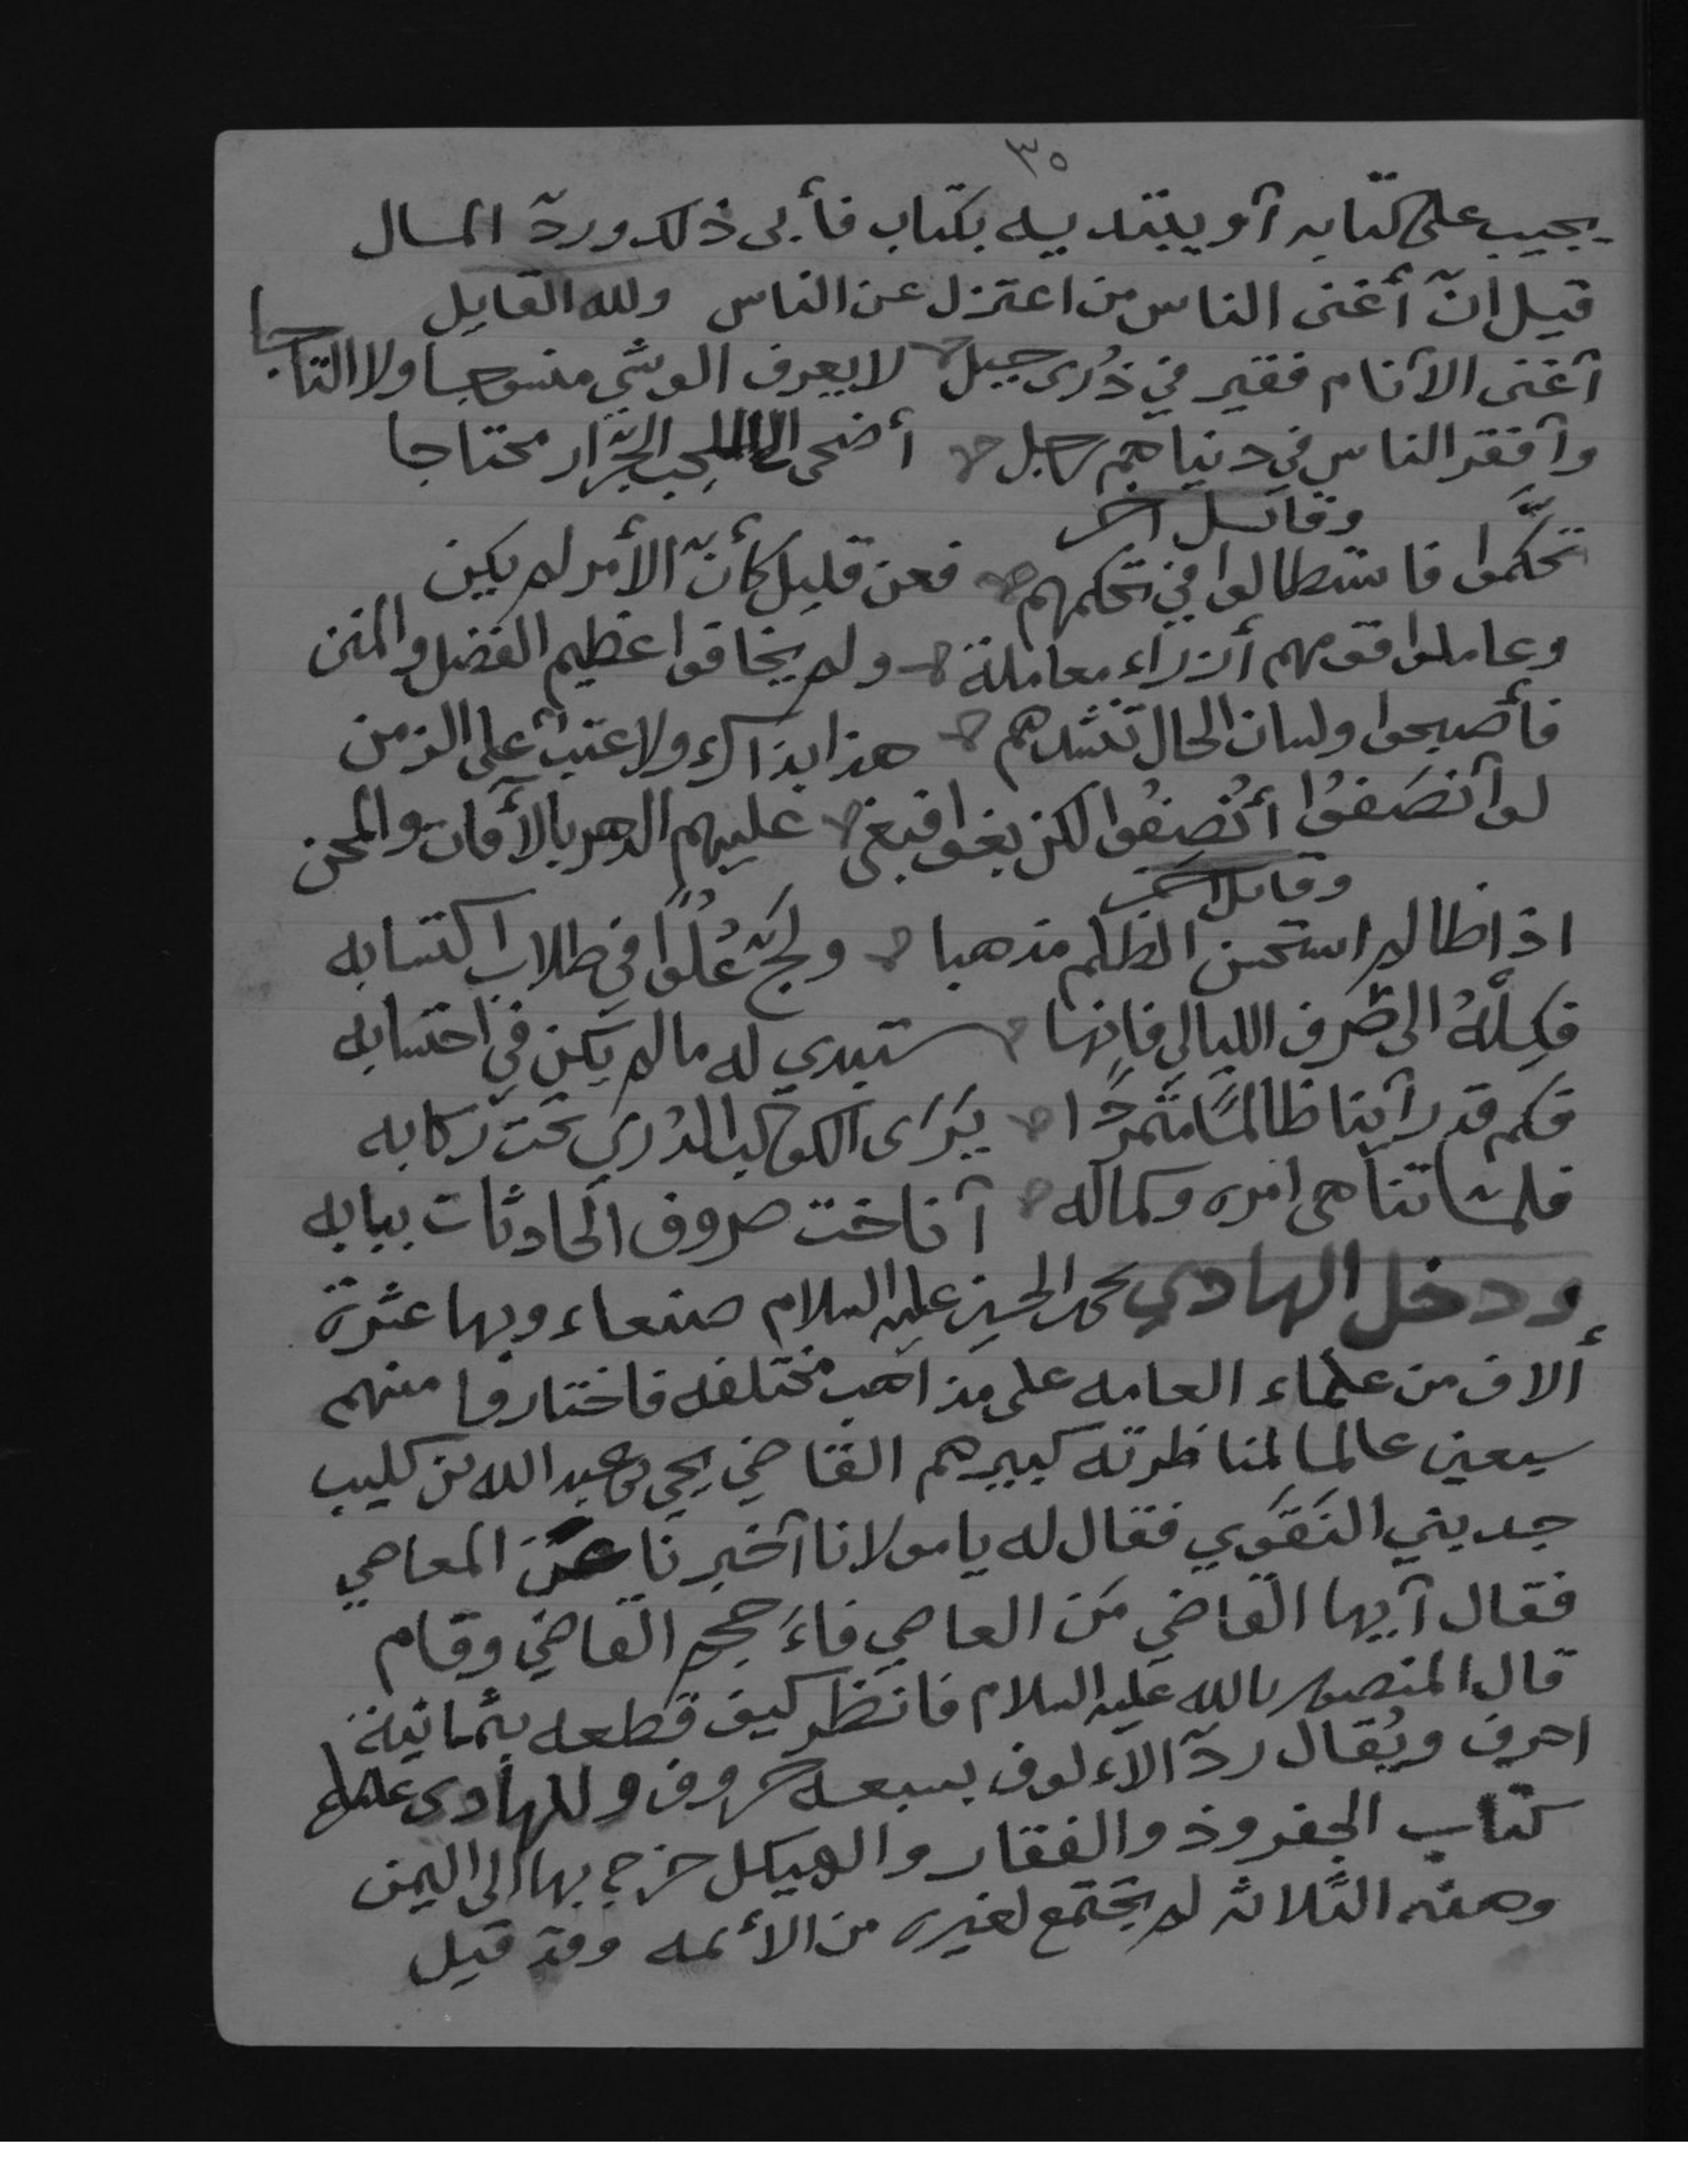 ٣٥
يجيب على كتابه أو يبتديه بكتاب فأبى ذلك وردّ المال
قيل انّ أغنى الناس من اعتزل عن الناس ولله القايل
أغنى الأنام فقير في ذُرى جبل لا يعرف الوشي منسوجا ولا التاجا
وأفقر الناس في دنياهم رجل أضحى الى اللجب الجرّار محتاجا
وقائل آخر
تحكّموا فاستطالوا في تحكمهم فعن قليل كأنّ الأمر لم يكن
وعاملوا قومهم أزراء معاملة ولم يخافوا عظيم الفضل والمنن
فأصبحوا ولسان الحال تنشدهم هذا بذاك ولا عتب على الزمن
لو أنصَفوُا أُنْصِفُوا لكن بغوا فبغى عليهم الدهر بالآفات والمحن
وقائل آخر
اذا ظالم استحسن الظلم مذهبا ولجّ عُلُوًا في طلاب اكتسابه
فكِلْهُ الى صَرف الليالي فإنها ستبدي له ما لم يكن في احتسابه
فكم قد رأينا ظالمًا متمردًا يَرَى الكوكب الدُري تحت ركابه
فلمّا تناهى امره وكماله أناخت صروف الحادثات ببابه
ودخل الهادي يحيى بن الحسين عليه السلام صنعاء وبها عشرة
ألاف من علماء العامه على مذاهب مختلفه فاختاروا منهم
سبعين عالما لمناظرته كبيرهم القاضي يحيى بن عبد الله بن كليب
جد بني النَقَوي فقال له يا مولانا أخبرنا عن المعاصي
فقال أيها القاضي مَن العاصي فاءَحجم القاضي وقام
قال المنصور بالله عليه السلام فانظر كيف قطعه بثمانية
احرف ويُقال ردّ الاءلوف بسبعه حروف وللهادى علىلم
كتاب الجفر وذو الفقار والهيكل خرج بها الى اليمن
وهذه الثلاثه لم يجتمع لغيره من الأئمه وقد قيل